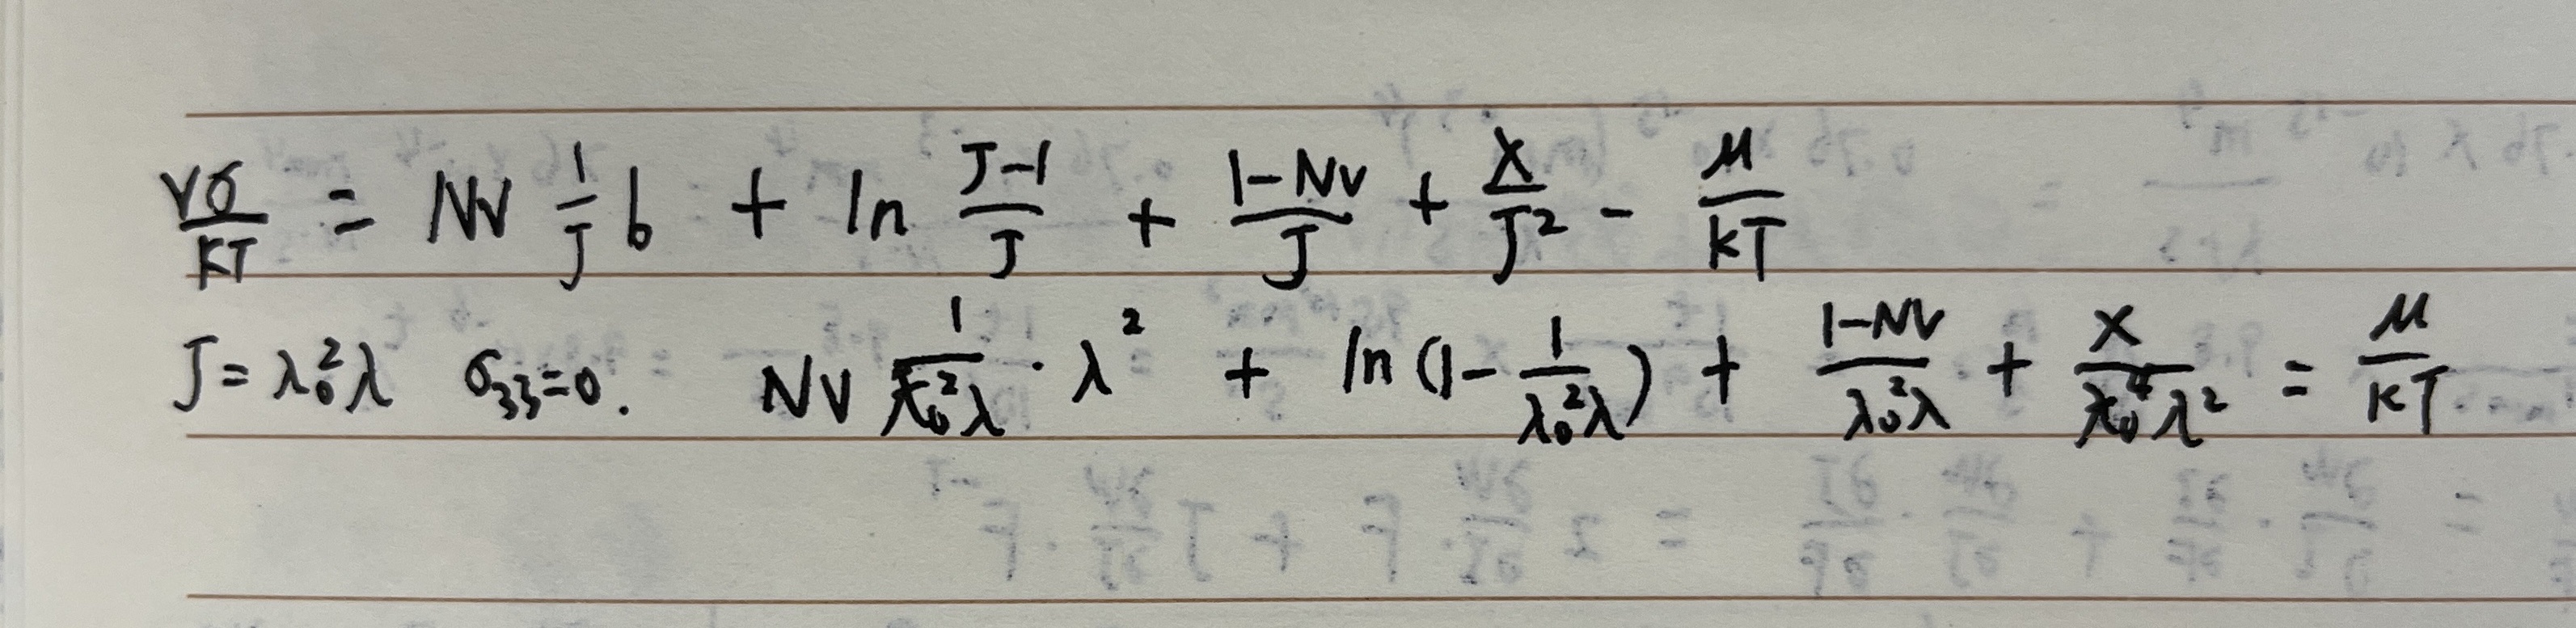 vσ/kT = Nv 1/J b + ln (J-1)/J + (1-Nv)/J + χ/J² - μ/kT
J = λ₀²λ σ₃₃=0. Nv 1/(λ₀²λ) · λ² + ln(1 - 1/(λ₀²λ)) + (1-Nv)/(λ₀²λ) + χ/(λ₀⁴λ²) = μ/kT